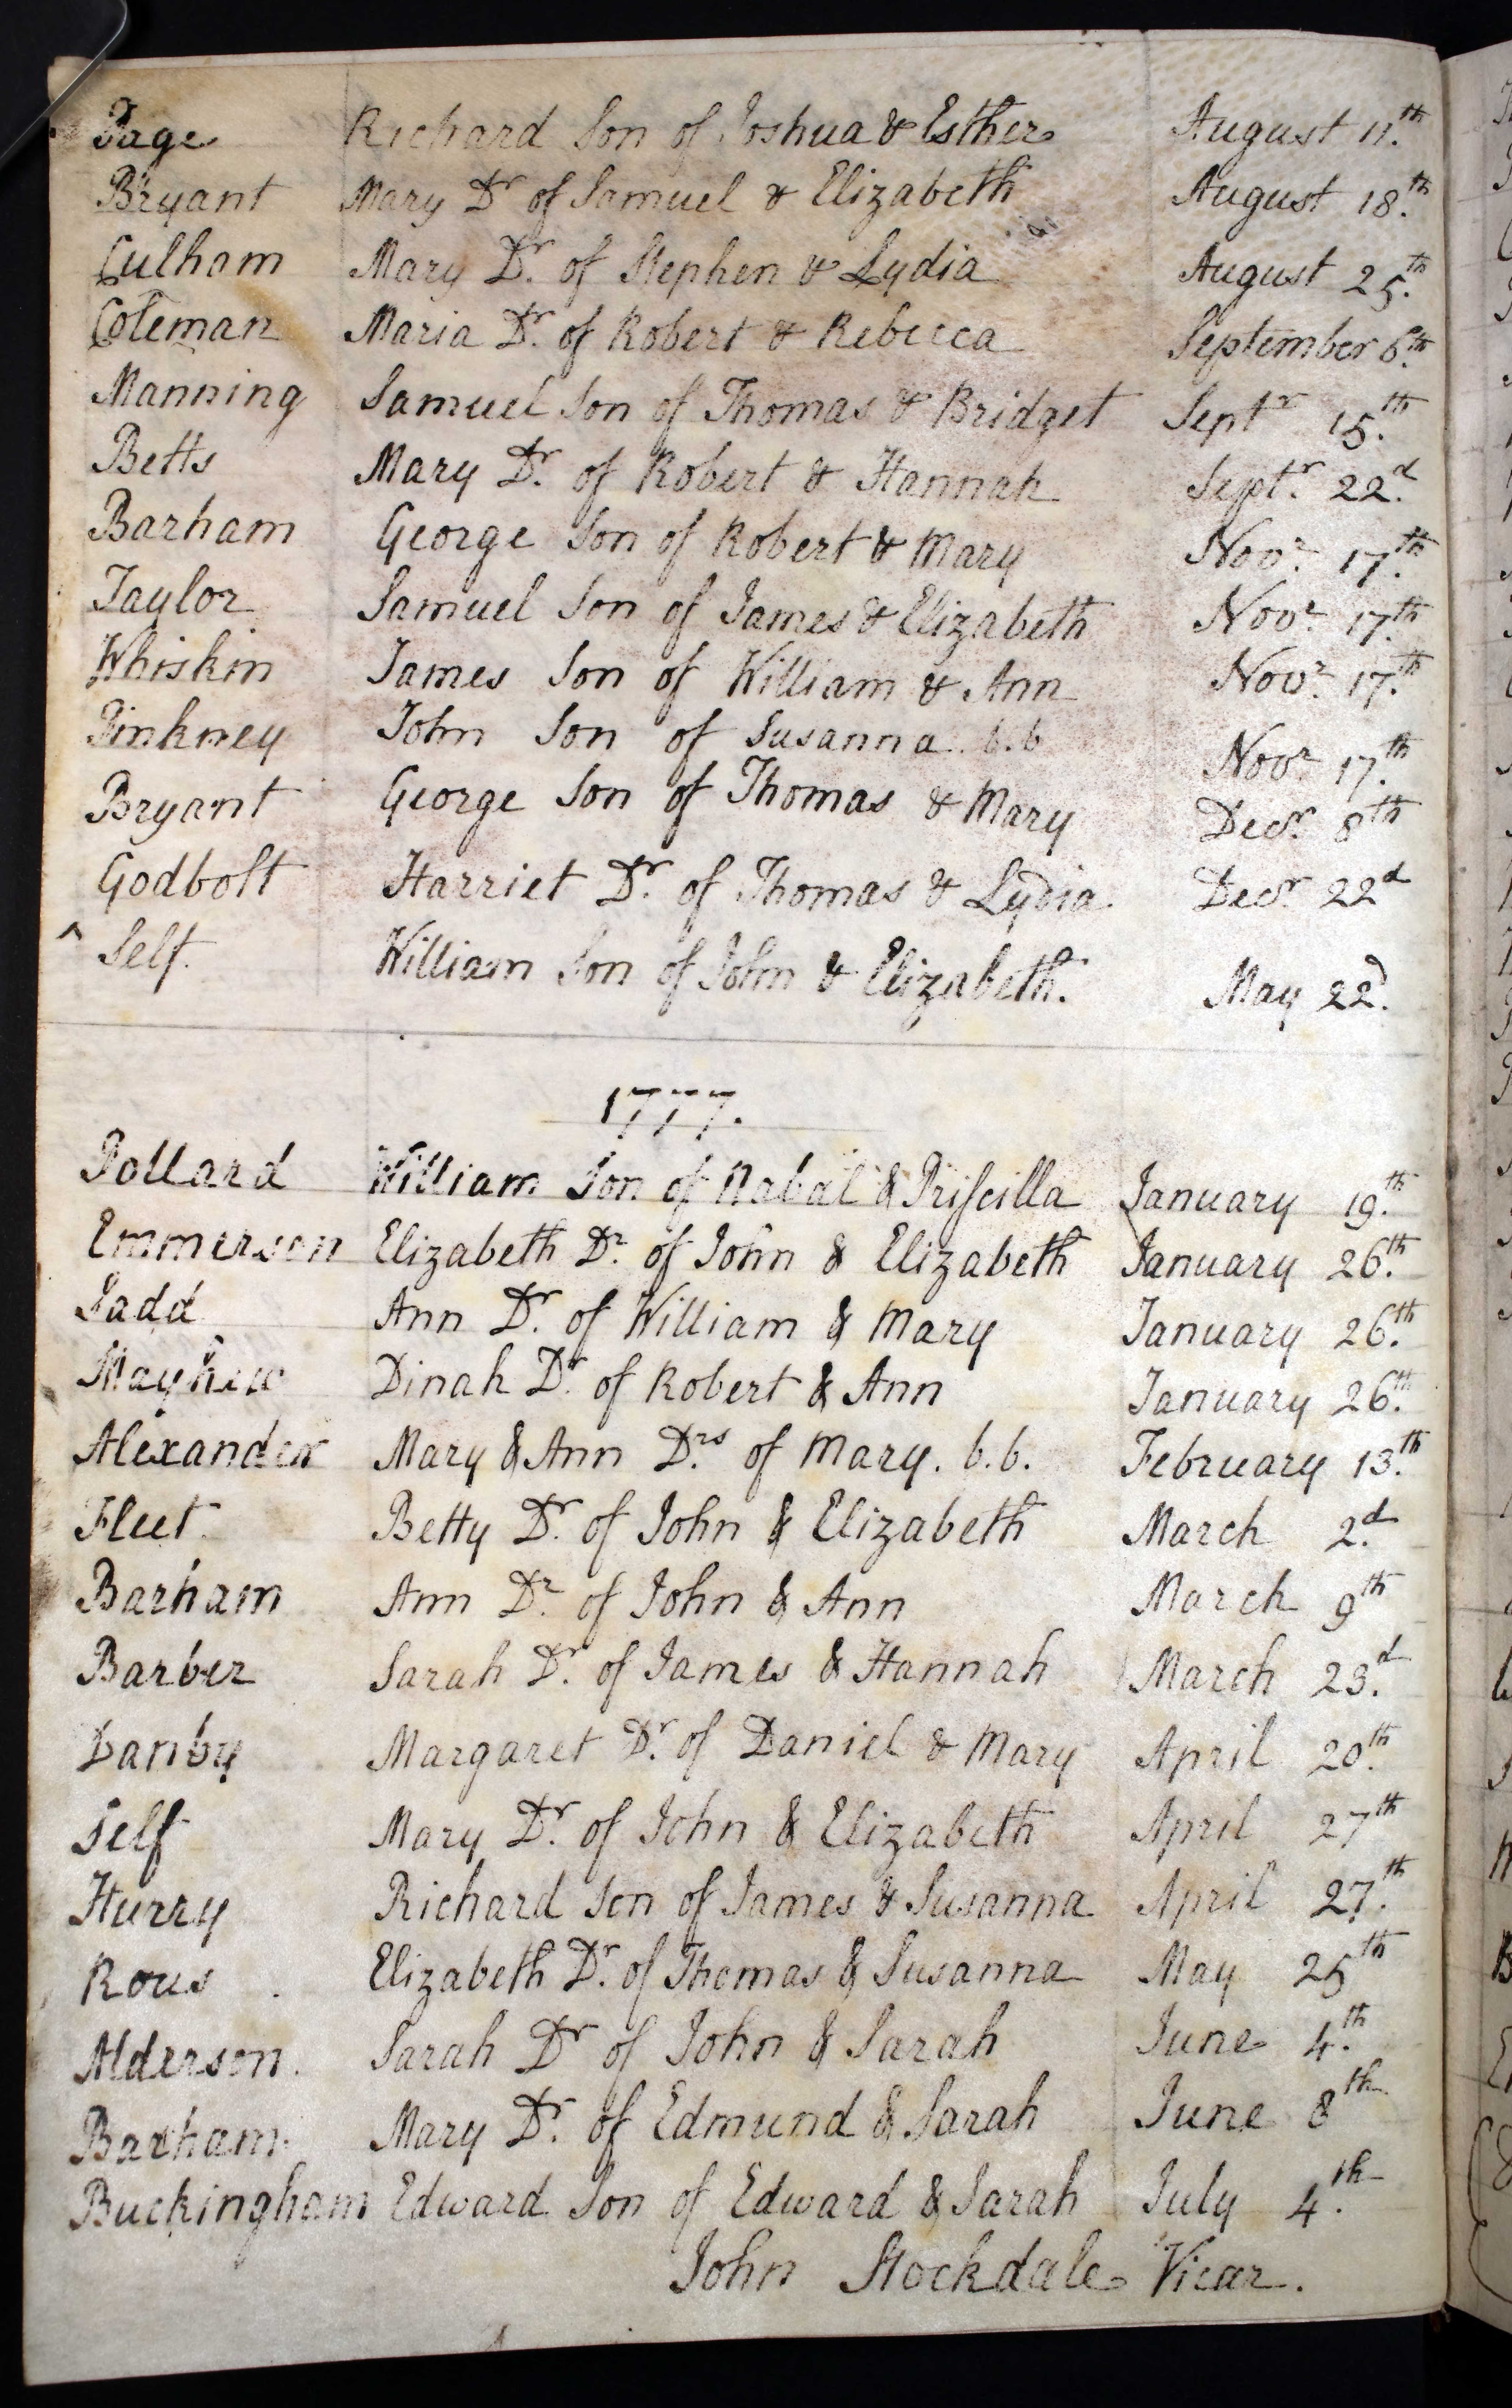 Page Richard Son of Joshua & Esther August 11.th
Bryant Mary Dr of Samuel & Elizabeth August 18.th
Culham Mary Dr. of Stephen & Lydia August 25.th
Coleman Maria Dr. of Robert & Rebecca September 8.th
Manning Samuel Son of Thomas & Bridget Septr 15.th
Betts Mary Dr. of Robert & Hannah Septr. 22.d
Barham George Son of Robert & Mary Novr. 17.th
Taylor Samuel Son of James & Elizabeth Novr. 17.th
Whiskin James Son of William & Ann Novr. 17.th
Pinkney John Son of Susanna. b.b Novr. 17.th
Bryant George Son of Thomas & Mary Decr. 8th
Godbolt Harriet Dr. of Thomas & Lydia. Decr. 22d
^ Self. William Son of John & Elizabeth. May 22d.
1777.
Pollard William Son of Nabal & Priscilla January 19.th
Emmerson Elizabeth Dr. of John & Elizabeth January 26.th
Ladd Ann Dr. of William & Mary January 26.th
Mayhew Dinah Dr. of Robert & Ann January 26.th
Alexander Mary & Ann Drs. of Mary. b.b. February 13.th
Fleet. Betty Dr. of John & Elizabeth March 2.d
Barham Ann Dr. of John & Ann March 9th
Barber Sarah Dr. of James & Hannah March 23.d
Danby Margaret Dr. of Daniel & Mary April 20.th
Self Mary Dr. of John & Elizabeth April 27th
Hurry Richard Son of James & Susanna April 27.th
Rous Elizabeth Dr. of Thomas & Susanna May 25th
Alderson. Sarah Dr of John & Sarah June 4.th
Barham. Mary Dr. of Edmund & Sarah June 8th
Buckingham Edward Son of Edward & Sarah July 4.th
John Stockdale Vicar.